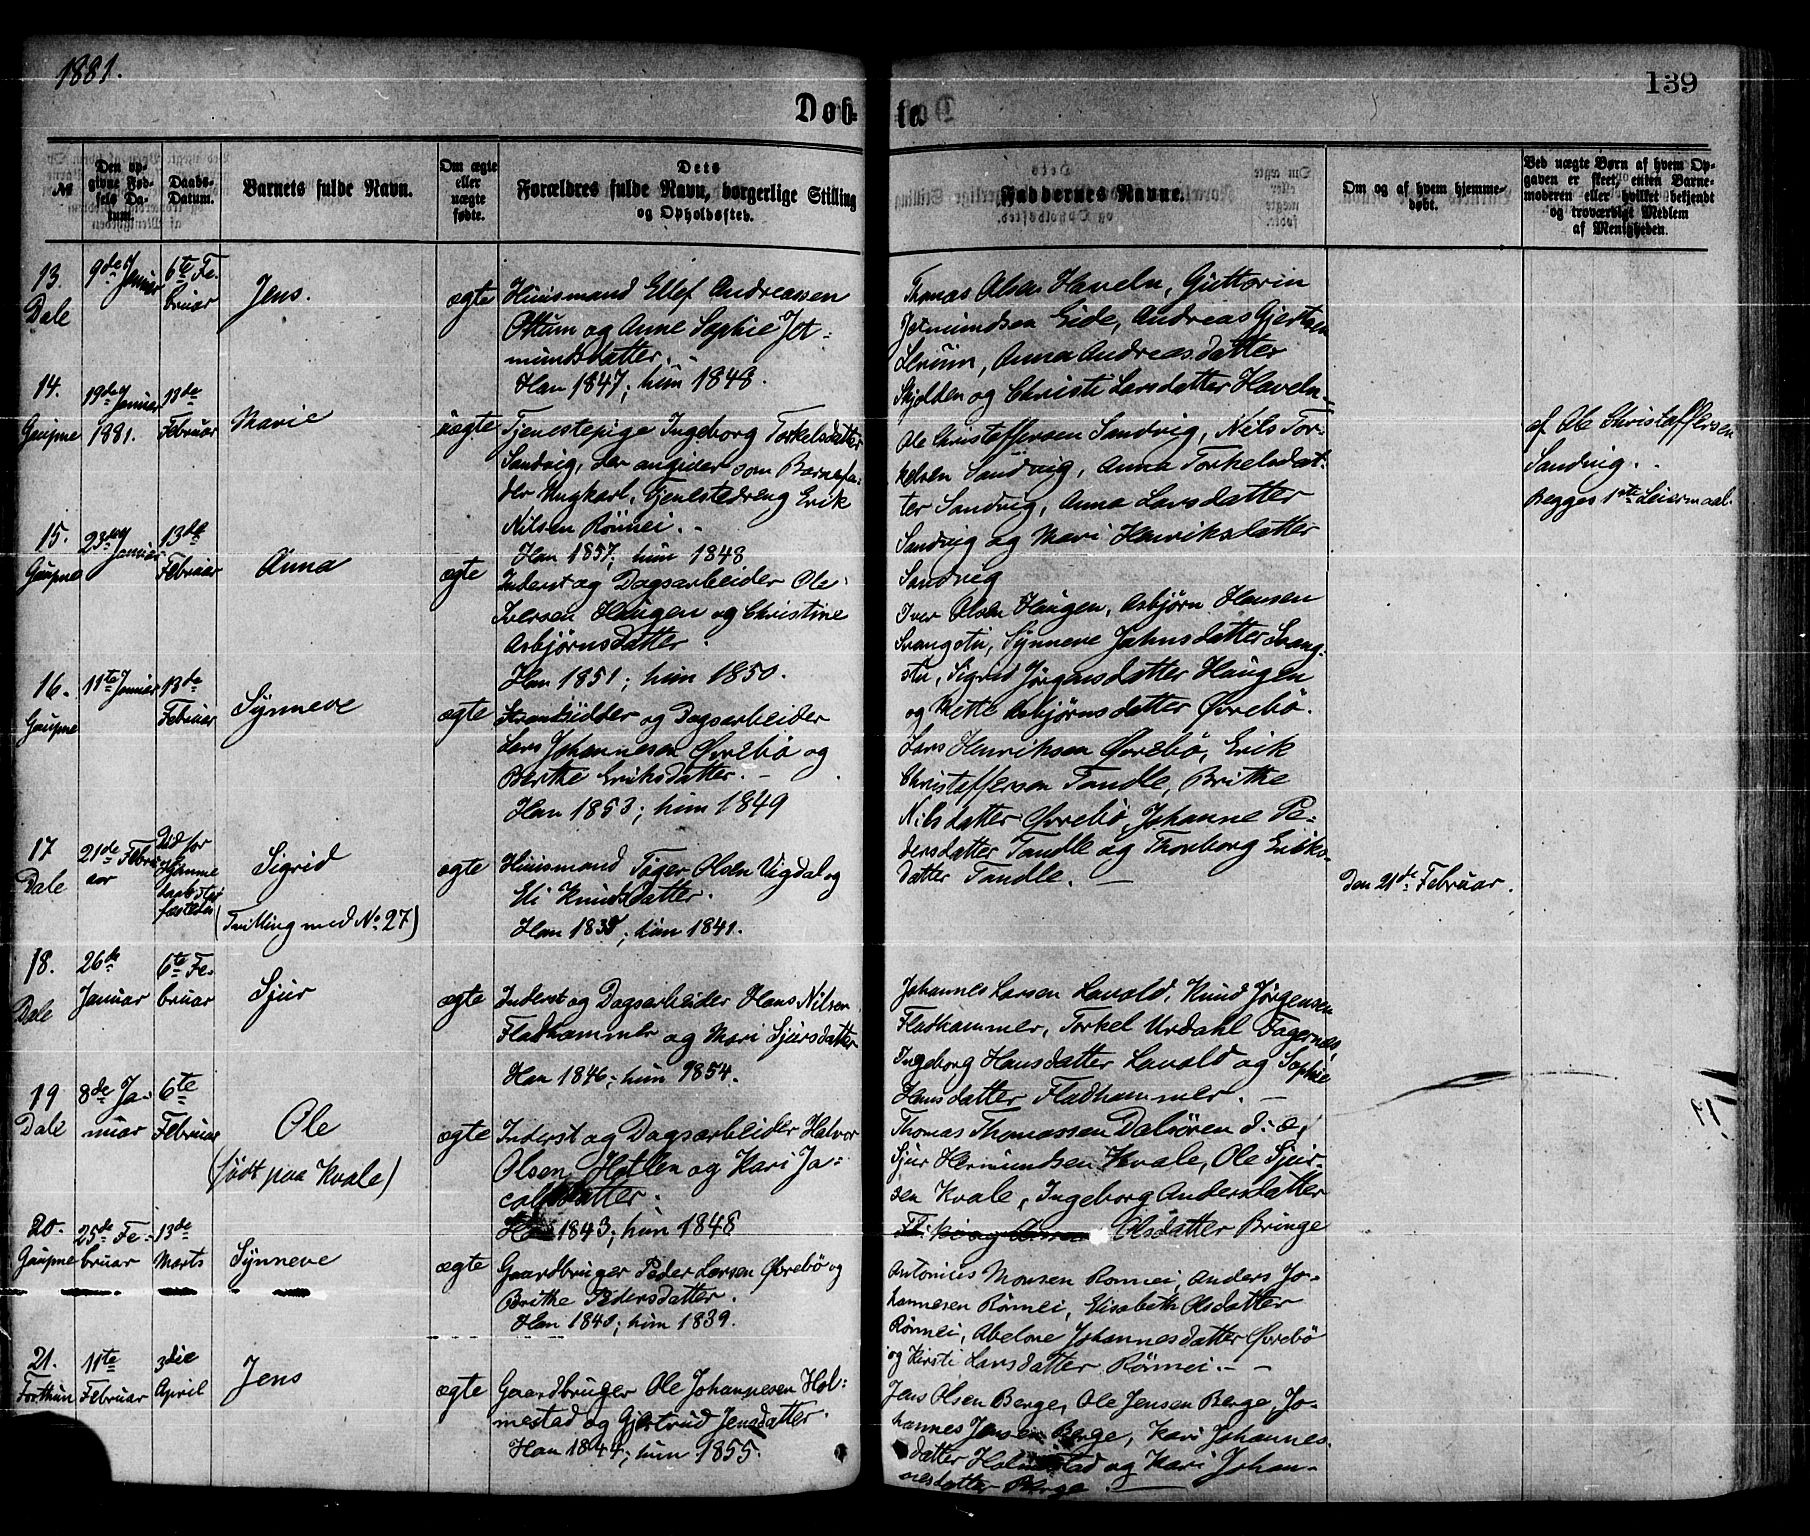 1881.
139
Døb-
te.
№
Den op-
givne Fød-
sels Da-
tum.
Daabs-
Datum.
Barnets fulde Navn.
Om ægte
eller
uægte
fødte.
Dets
Forældres fulde Navn, borgerlige Stilling
og Opholdssted.
Faddernes Navne.
Om og af hvem hjemme-
døbt.
Ved uægte Børn af hvem Op-
gaven er skeet, enten Barne-
moderen eller hvilket bekjendt
og troværdigt Medlem
af Menigheden.
13.
Dale
9de Januar
6te Fe-
bruar
Jens.
ægte
Huusmand Ellef Andreassen
Ottum og Anne Sophie Jet-
mundsdatter.
Han 1847; hun 1848.
Thomas Olsen Haveln, Guttorm
Jetmundsen Eide, Andreas Gjertsen
Lerum, Anna Andreasdatter
Skjolden og Christi Larsdatter Haveln
14.
Gaupne
19de Januar
1881.
13de
Februar
Marie
uægte
Tjenestepige Ingeborg Torkelsdatter
Sandvig, der angiver som Barnefa-
der Ungkarl, Tjenestedreng Erik
Nilsen Rönnei.
Han 1857; hun 1848
Ole Christoffersen Sandvig, Nils Tor-
kelsen Sandvig, Anna Torkelsdat-
ter Sandvig, Anna Larsdatter
Sandvig og Mari Henriksdatter
Sandvig
af Ole Christoffersen
Sandvig.
Begges 1ste Leiermaal.
15.
Gaupne
23de Januar
13de
Februar
Anna
ægte
Inderst og Dagsarbeider Ole
Iversen Haugen og Christine
Asbjørnsdatter.
Han 1851; hun 1850.
Iver Olsen Haugen, Asbjørn Hansen
Svangstu, Synneve Johnsdatter Svang-
stu, Sigrid Jørgensdatter Haugen
og Mette Asbjørnsdatter Øvrebö.
16.
Gaupne
11te Januar
13de
Februar
Synneve
ægte
Strandsidder og Dagsarbeider
Lars Johannesen Øvrebö og
Berthe Eriksdatter.
Han 1853; hun 1849
Lars Henriksen Øvrebö, Erik
Christoffersen Tandle, Brithe
Nilsdatter Øvrebö, Johanne Pe-
dersdatter Tandle og Thorborg Eriks-
datter Tandle.
17
Dale
21de Febru-
ar
Död for
Hjemme
daabs
Sigrid
(Tvilling med No. 27)
ægte
Huusmand Tøger Olsen Vigdal og
Eli Knudsdatter.
hun 1841.
Den 21de Februar.
18.
Dale
26de
Januar
6te Fe-
bruar
Sjur
ægte
Inderst og Dagsarbeider Hans Nilsen
Fladhammer og Mari Sjursdatter
Han 1846; hun 1854.
Johannes Larsen Lavold, Knud Jørgensen
Fladhammer, Torkel Urdahl Fagernes
Ingeborg Hansdatter Lavold og Sophie
Hansdatter Fladhammer.
19
Dale
8de Ja-
nuar
6te
Februar
Ole
(født paa Kvale)
ægte
Inderst og Dagsarbeider Halvor
Olsen Hollen og Kari Ja-
cobsdatter.
1843; hun 1848
Thomas Thomassen Dalsören d. æ,
Sjur Hermundsen Kvale, Ole Sjur-
sen Kvale, Ingeborg Andersdatter
Olsdatter Bringe
20.
Gaupne
25de Fe-
bruar
13de
Marts
Synneve
ægte
Gaardbruger Peder Larsen Øvrebö og
Brithe Pedersdatter.
Han 1840; hun 1839.
Antonius Monsen Rönnei, Anders Jo-
hannesen Rönnei, Elisabeth Olsdatter
Rönnei, Abelone Johannesdatter Øvrebö
og Kirsti Larsdatter Rönnei.
21.
Forthun
11te
Februar
3die
April
Jens
ægte
Gaardbruger Ole Johannesen Hol-
mestad og Gjertrud Jensdatter.
Han 1844; hun 1855.
Jens Olsen Berge, Ole Jensen Berge, Jo-
hannes Jensen Berge, Kari Johannes-
datter Holmestad og Kari Johan-
nesdatter Berge.